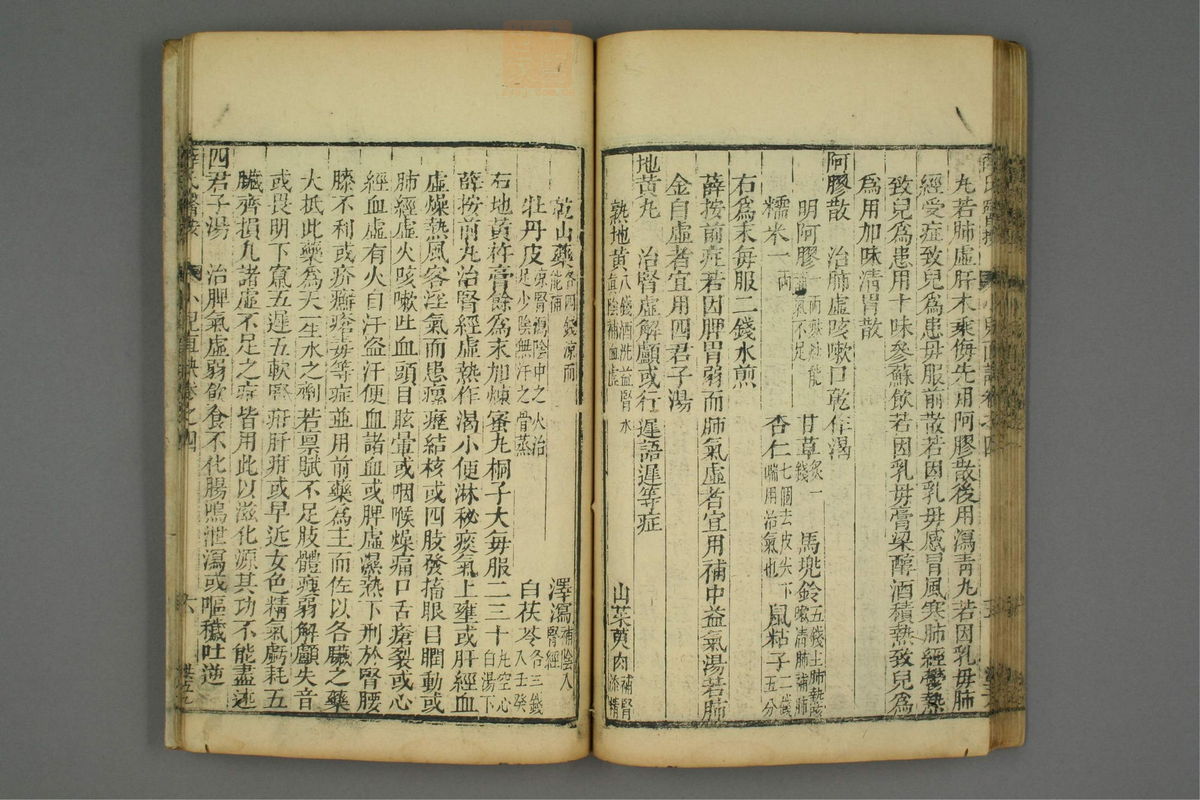 丸若肺虛肝木乘侮先用阿膠散後用瀉青丸若因乳母肺
經受症致兒爲患母服前散若因乳母感冒風寒肺經鬱熱
致兒爲患用十味參蘇飲若因乳母膏粱醇酒積熱致兒爲
爲用加味清胃散
阿膠散 治肺虛咳嗽口乾作渴
明阿膠 甘草炙一錢 馬兜鈴五錢主肺熱咳嗽清肺補肺
糯米一兩 杏仁七個去皮尖下喘用治氣也 鼠粘子二錢五分
右爲末每服二錢水煎
薛按前症若因脾胃弱而肺氣虛者宜用補中益氣湯若肺
金自虛者宜用四君子湯
地黃丸 治腎虛解顱或行遲語遲等症
熟地黃八錢酒洗益腎水眞陰補血虛 山茱萸肉補腎添精
乾山藥各四錢涼而能補 澤瀉補陰入腎經
牡丹皮瀉陰中之火治足少陰無汗之骨蒸 白茯苓各三錢入壬癸
右地黃杵膏餘爲末加煉蜜丸桐子大每服二三十丸空心白湯下
薛按前丸治腎經虛熱作渴小便淋秘痰氣上壅或肝經血
虛燥熱風客淫氣而患瘰癧結核或四肢發搐眼目瞤動或
肺經虛火咳嗽吐血頭目眩暈或咽喉燥痛口舌瘡裂或心
經血虛有火自汗盜汗便血諸血或脾虛濕熱下刑於腎腰
膝不利或疥癬瘡毒等症並用前藥爲主而佐以各臟之藥
大抵此藥爲天一生水之劑若禀賦不足肢體瘦弱解顱失音
或畏明下竄五遲五軟腎疳肝疳或早近女色精氣虧耗五
臟齊損凡諸虛不足之症皆用此以滋化源其功不能盡述
四君子湯 治脾氣虛弱飲食不化腸鳴泄瀉或嘔穢吐逆